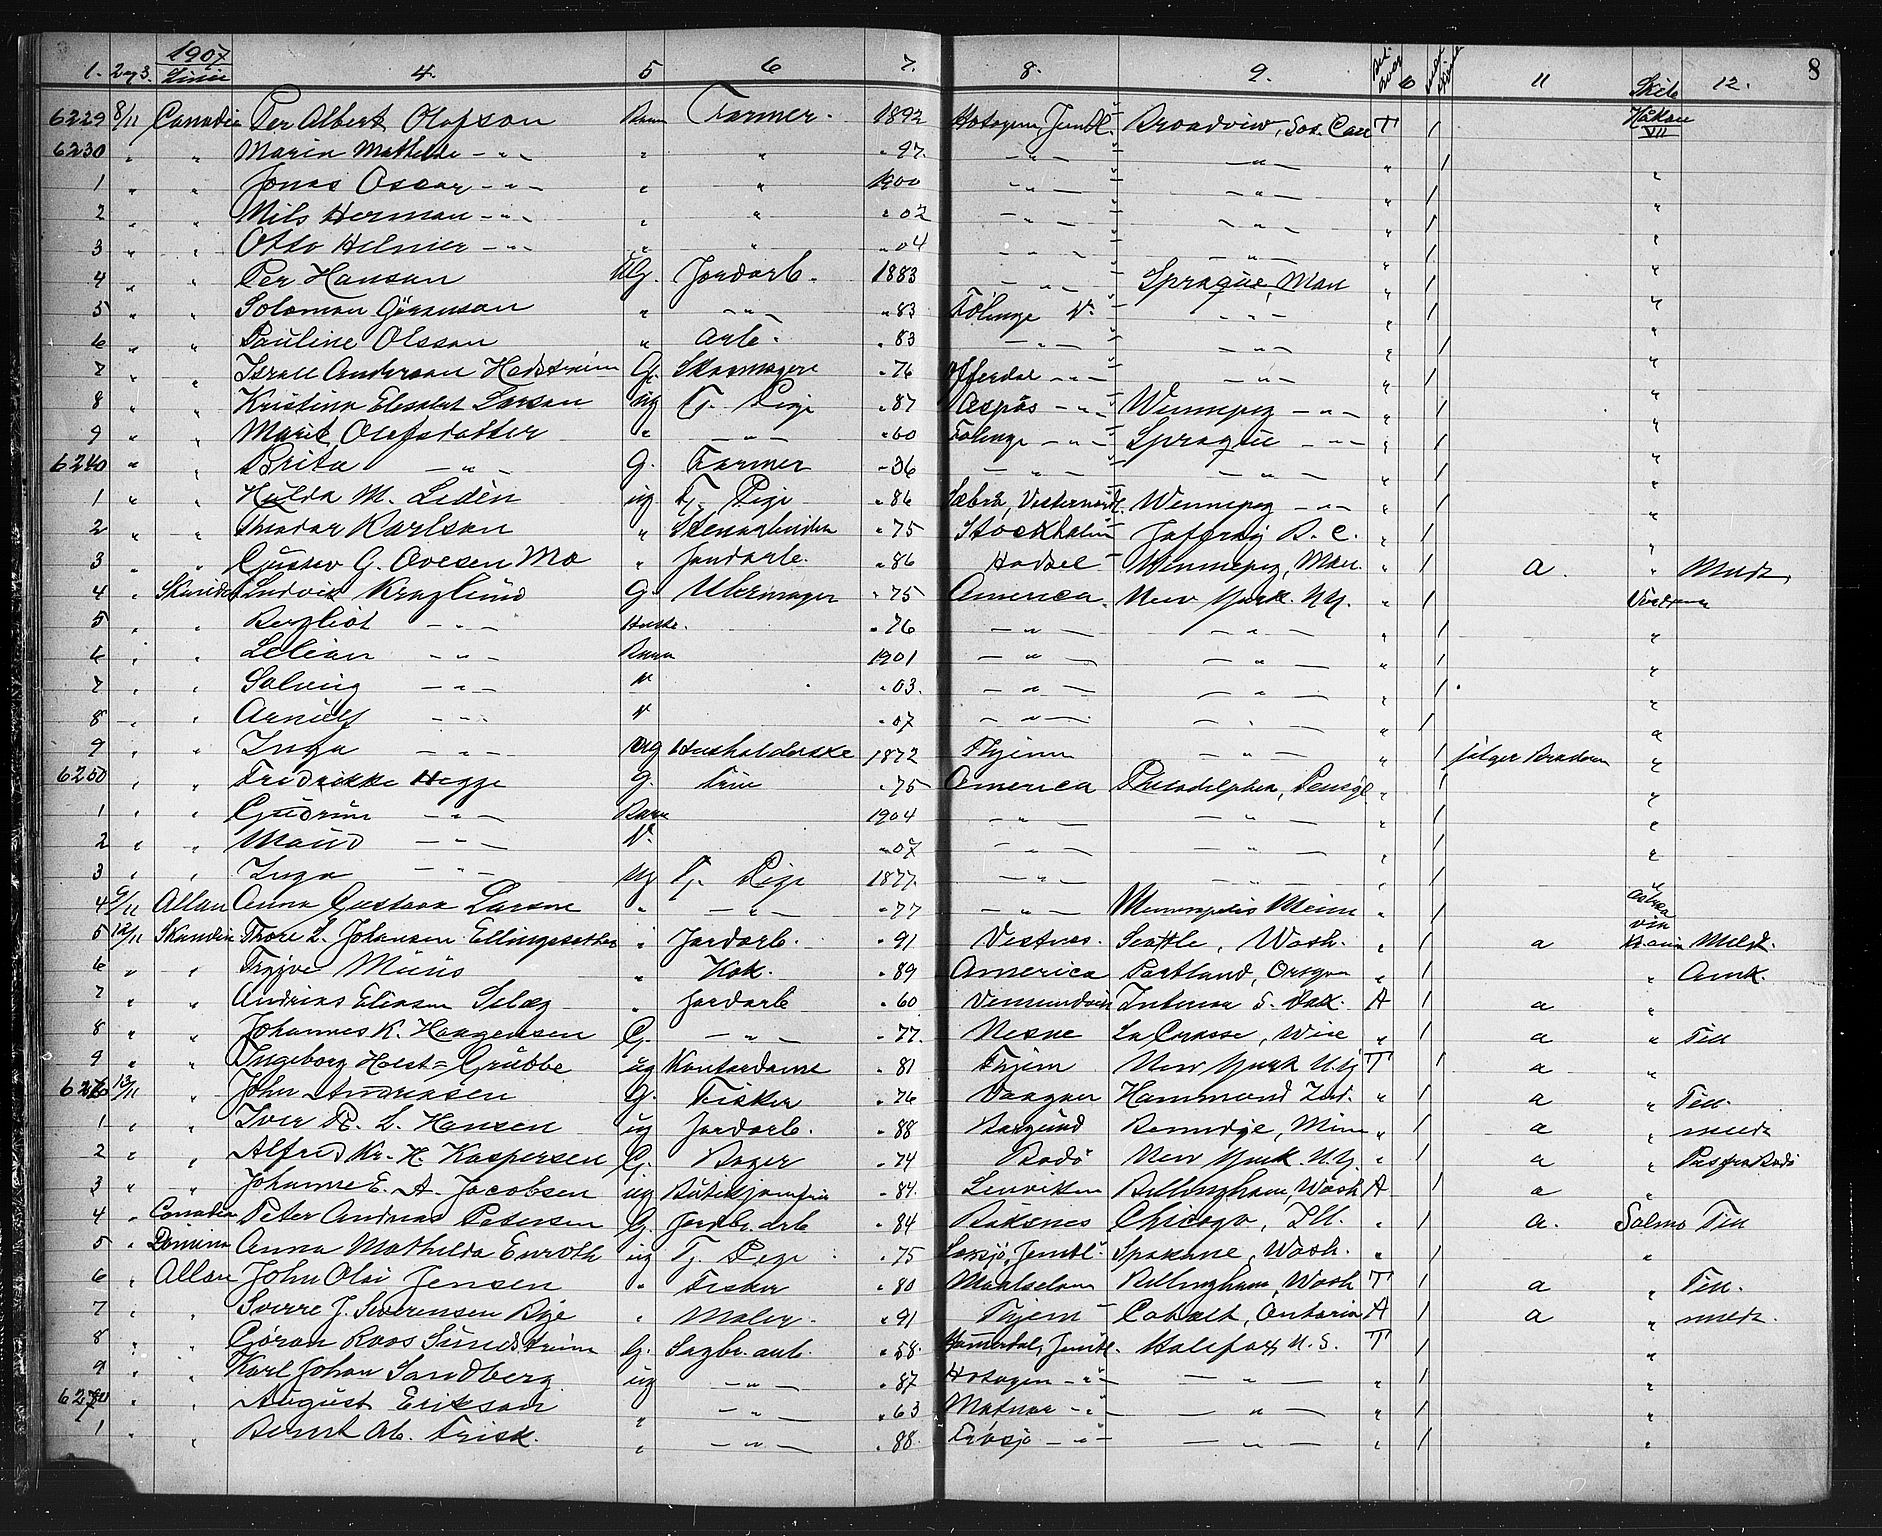 1907 8
1. 2 og 3. Linie 4. 5 6 7. 8. 9. 11 Skib 12.
6229 8/11 Canadia Per Albert Olofson Barn Farmer. 1892 Hotagen Jemtl. Broadview, Sas. Can T / Håkan VII
6230 " " Maria Mathilde - " - " " " 97. - " - - " - " / "
1 " " Jonas Oscar - " - " " 1900 - " - - " - " / "
2 " " Nils Herman - " - " " " 02 - " - - " - " / "
3 " " Otto Helmer - " - " " " 04 - " - - " - " / "
4 " " Per Hanson Ug. Jordarb. 1883 - " - Sprague, Man " / "
5 " " Solomon Göranson " - " - " 83 Föllinge " - " - " / "
6 " " Pauline Olsson " Arb. " 83 - " - - " - " / "
7 " " Israel Anderson Hedström G. Skomager " 76 Offerdal - " - - " - " / "
8 " " Kristina Elisabet Larson ug Tj. Pige " 87 Aspås - " - Winnepeg - " - " / "
9 " " Marit Olofsdotter " - " - " 60 Föllinge - " - Sprague - " - " / "
6240 " " Brita - " - G. Farmer " 36 - " - - " - " / "
1 " " Hulda M. Lidén ug. Tj. Pige " 86 Sæbrå, Vesternordl. Winnepeg - " - " / "
2 " " Theodor Karlson " Stenarbeider " 75 Stockholm Jaffray B. C. " / "
3 " " Gustav G. Ovesen Mo " Jordarb. " 86 Hadsel Winnepeg, Man. " / a. " Meldt
4 " Skandin Ludvig Kraglund G. Uhrmager " 75 America. New York. N.Y. " /
5 " " Bergliot - " - Hustr. " 76 - " - - " - " / "
6 " " Lilian - " - Barn 1901 - " - - " - " / "
7 " " Solveig - " - " " 03. - " - - " - " / "
8 " " Arnulf - " - " " 07 - " - - " - " / "
9 " " Inga - " - ug Husholderske 1872 Thjem - " - " / følger Broderen "
6250 " " Fredrikke Hegge G. Frue " 75 America Philadelphia, Pensyl " / "
1 " " Gudrun - " - Barn 1904 - " - - " - " / "
2 " " Maud - " - " " 07 - " - - " - " / "
3 " " Inga - " - ug Tj. Pige 1877. - " - - " - " / "
4 9/11 Allan Anna Gustava Larson " - " - " 77 - " - Minneapolis Minn " /
5 12/11 Skandin Thore L. Johansen Ellingsæther " Jordarb. " 91 Vestnes. Seattle, Wash. " / a Meldt.
6 " " Trygve Müüs " Kok. " 89 America Portland, Oregon " / " Amk.
7 " " Andreas Eliasen Selæg " Jordarb " 60 Vemundvik S. Dak. A / a "
8 " " Johannes K. Haagensen G. - " - " 77. Nesne La Crosse, Wise " / a " Till
9 " " Ingeborg Holst=Grubbe ug Kontordame " 81 Thjem New York N.Y T / a "
13/11 " John Andreasen G. Fisker " 76 Vaagan Hammond Ind. " / a " Till.
1 " " Iver P. L. Hansen ug Jordarb. " 88 Borgund Bemidje, Minn " / a " meldt
2 " " Alfred Kr. H. Kaspersen G. Bager " 74 Bodö New York. N.Y. " / a " Pas fra Bodö
3 " " Johanne E. A. Jacobsen ug Butikjomfru " 84. Lenviken Bellingham, Wash A / a "
4 " Canada Peter Andreas Petersen G. Jordbr. arb " 84 Baksnes Chicago, Ill. " / a. Salmo Till
5 " Dominion Anna Mathilda Enroth ug Tj. Pige " 75 Spokane, Wash. " / "
6 " Allan John Olai Jensen " Fisker " 80 Maalselven Bellingham, Wash T / a " Till.
7 " " Sverre J. Severensen Rye " Maler. " 91 Thjem Cobalt, Ontario A / a " meldt.
8 " " Göran Roos Sundström G. Sagbr. arb. " 58. Hammerdal, Jemtl. Halefax N. S. T / "
9 " " Karl Johan Sandberg ug - " - " 87 Hotagen - " - - " - " / "
" " August Erikson " - " - " 63 - " - - " - " / "
1 " " Bernt Ab. Frisk. " - " - " 88. - " - - " - " / "